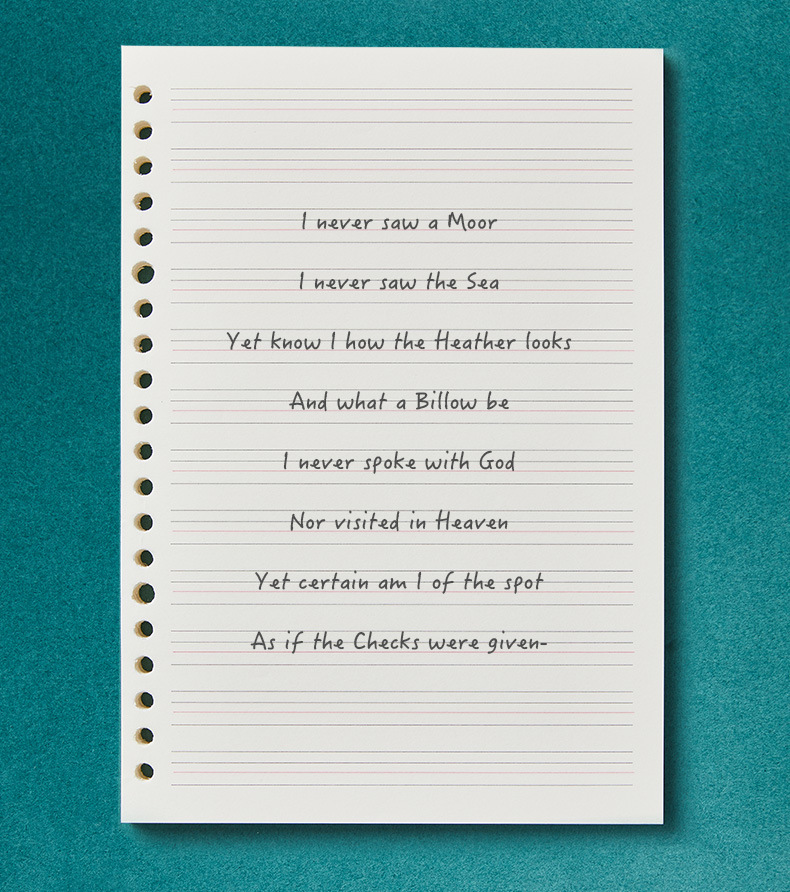 I never saw a Moor
I never saw the Sea
Yet know I how the Heather looks
And what a Billow be
I never spoke with God
Nor visited in Heaven
Yet certain am I of the spot
As if the Checks were given-